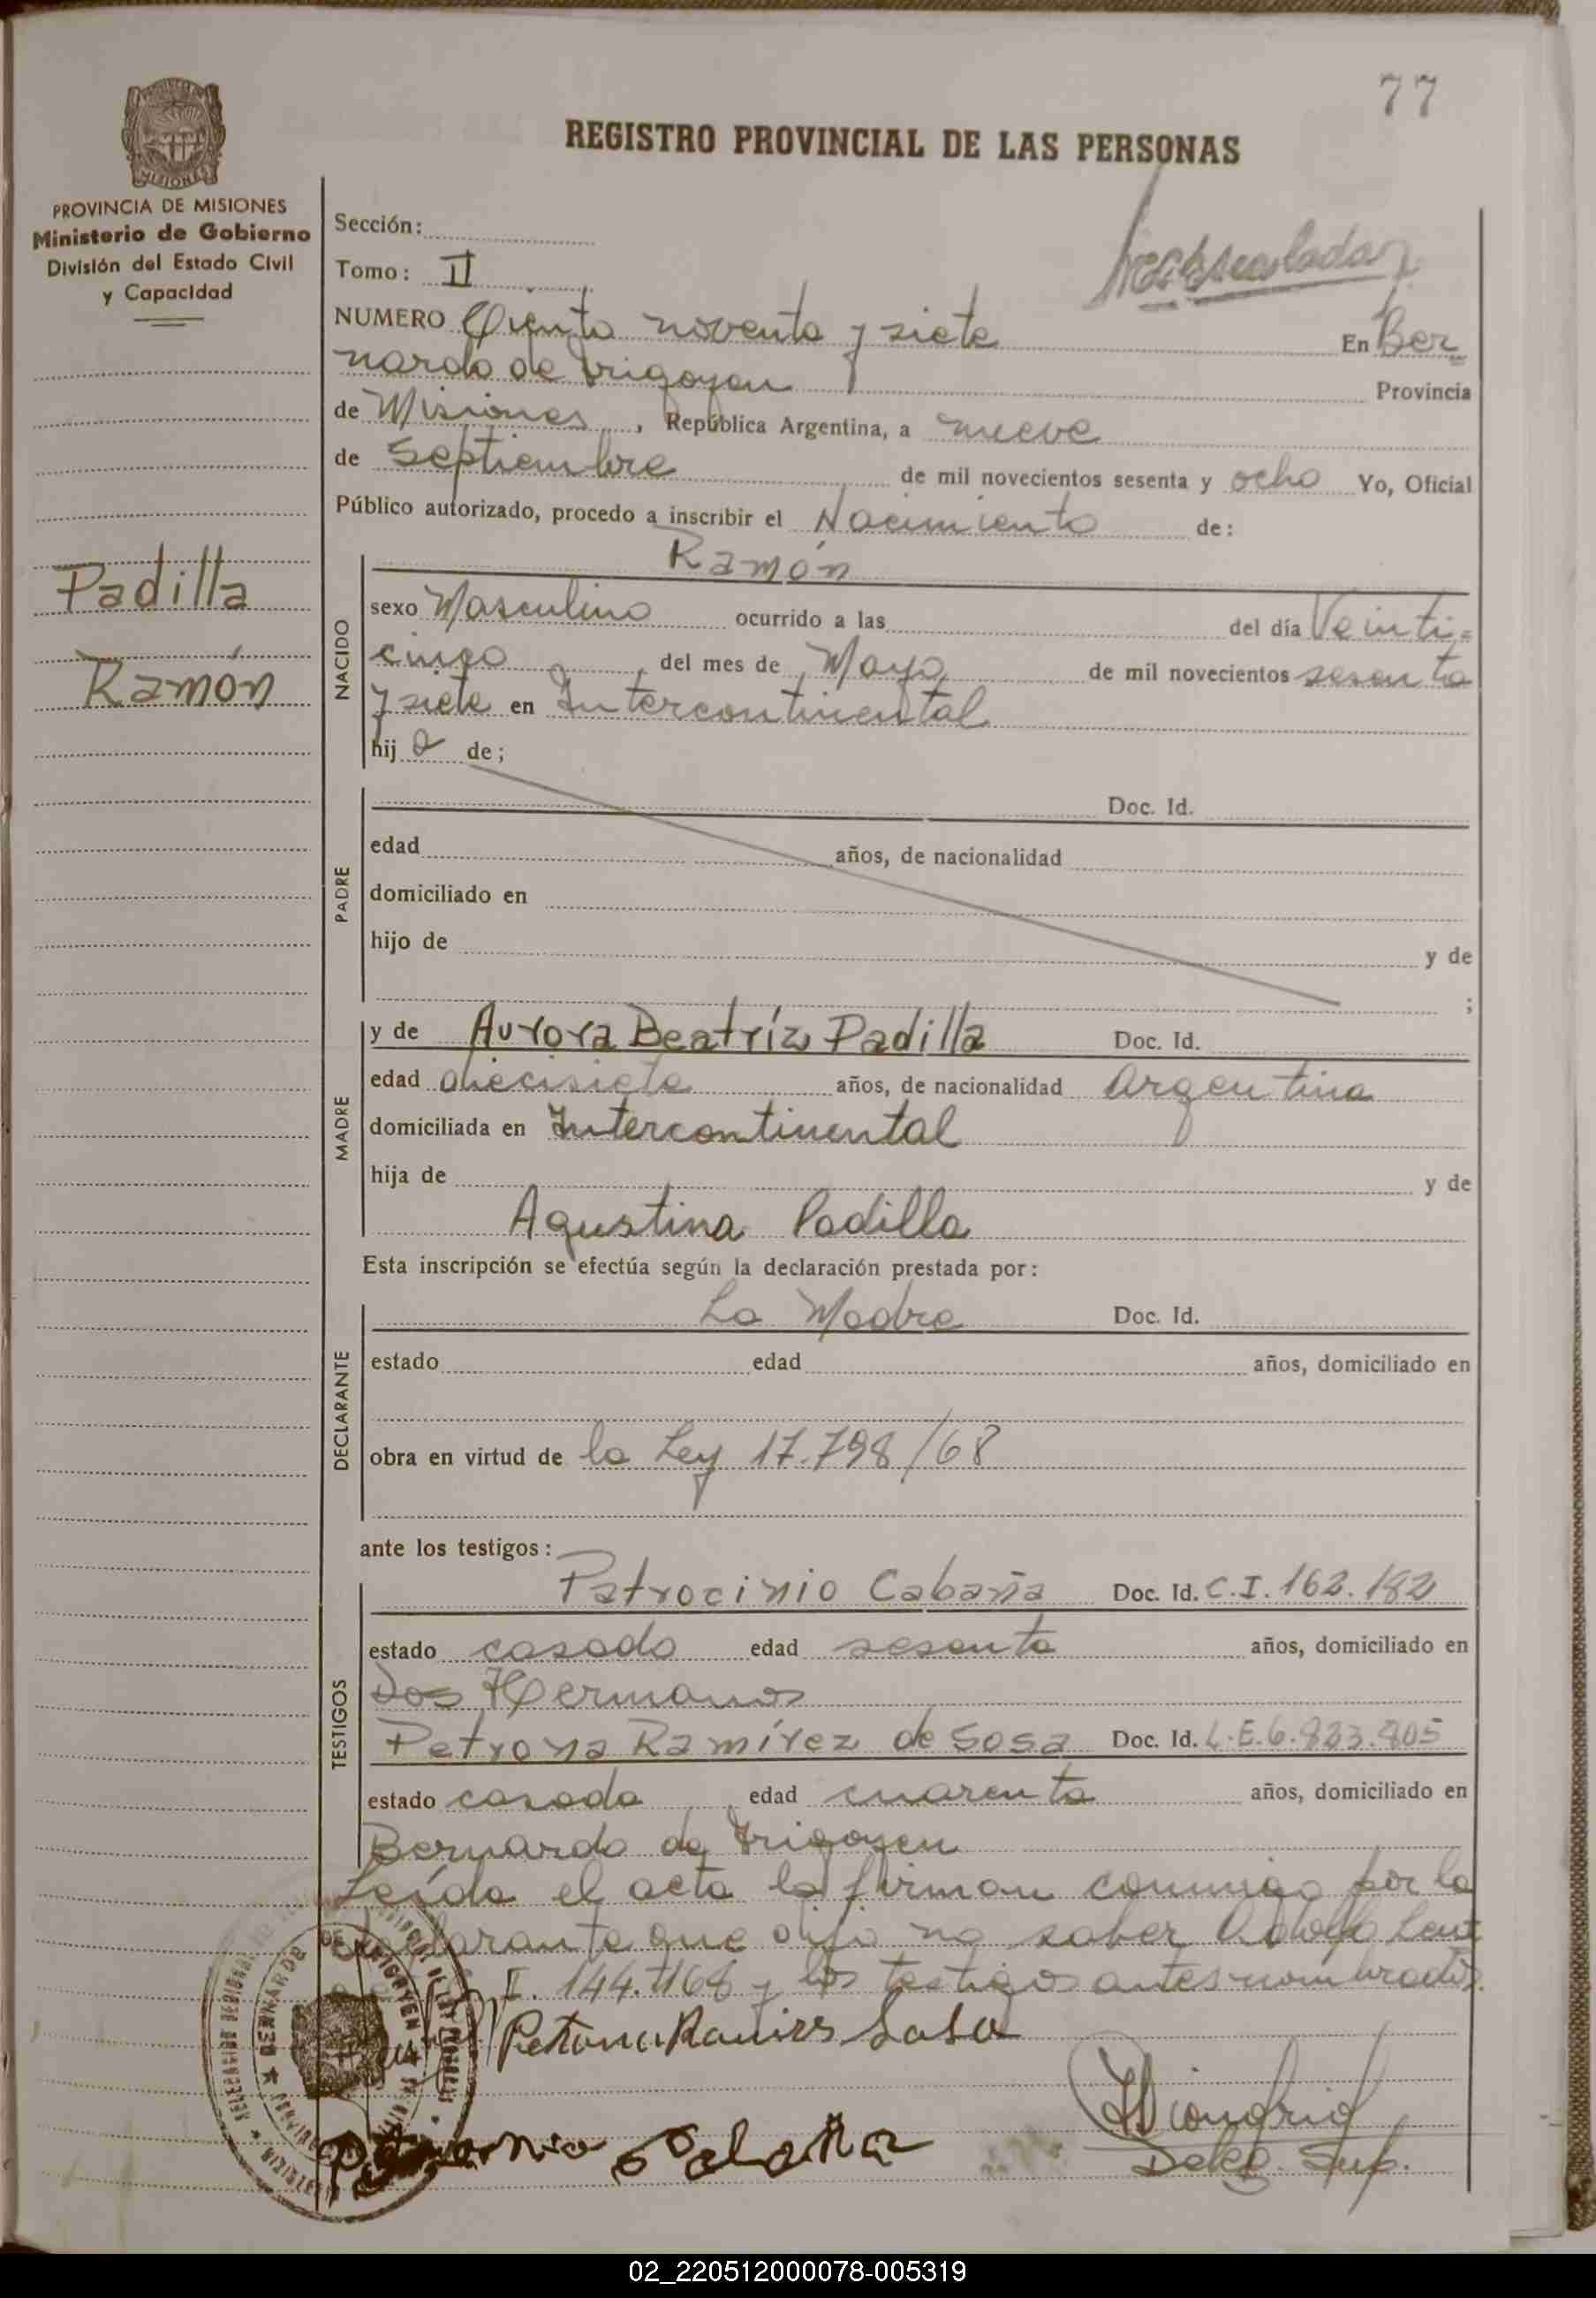 77
REGISTRO PROVINCIAL DE LAS PERSONAS
MISIONES
PROVINCIA DE MISIONES
Ministerio de Gobierno
División del Estado Civil
y Capacidad
Padilla
Ramón
Sección:
Tomo: II
NUMERO Ciento noventa y siete En Ber
nardo de Irigoyen Provincia
de Misiones, República Argentina, a nueve
de Septiembre de mil novecientos sesenta y ocho Yo, Oficial
Público autorizado, procedo a inscribir el Nacimiento de:
Ramón
NACIDO
sexo Masculino ocurrido a las del día Veinti-
cinco, del mes de Mayo de mil novecientos sesenta
y siete en Intercontinental
hijo de;
PADRE
Doc. Id.
edad años, de nacionalidad
domiciliado en
hijo de y de
;
MADRE
y de Aurora Beatríz Padilla Doc. Id.
edad diecisiete años, de nacionalidad Argentina
domiciliada en Intercontinental
hija de y de
Agustina Padilla
Esta inscripción se efectúa según la declaración prestada por:
DECLARANTE
La Madre Doc. Id.
estado edad años, domiciliado en
obra en virtud de la Ley 17.798/68
ante los testigos:
TESTIGOS
Patrocinio Cabaña Doc. Id. C.I. 162.182
estado casado edad sesenta años, domiciliado en
Dos Hermanos
Petrona Ramírez de Sosa Doc. Id. L.E. 6.823.805
estado casada edad cuarenta años, domiciliado en
Bernardo de Irigoyen
Leída el acta la firman conmigo por la
declarante que dijo no saber Adolfo
I. 144.1168 y los testigos antes nombrados.
Petrona Sosa
Deleg. Sup.
02_220512000078-005319